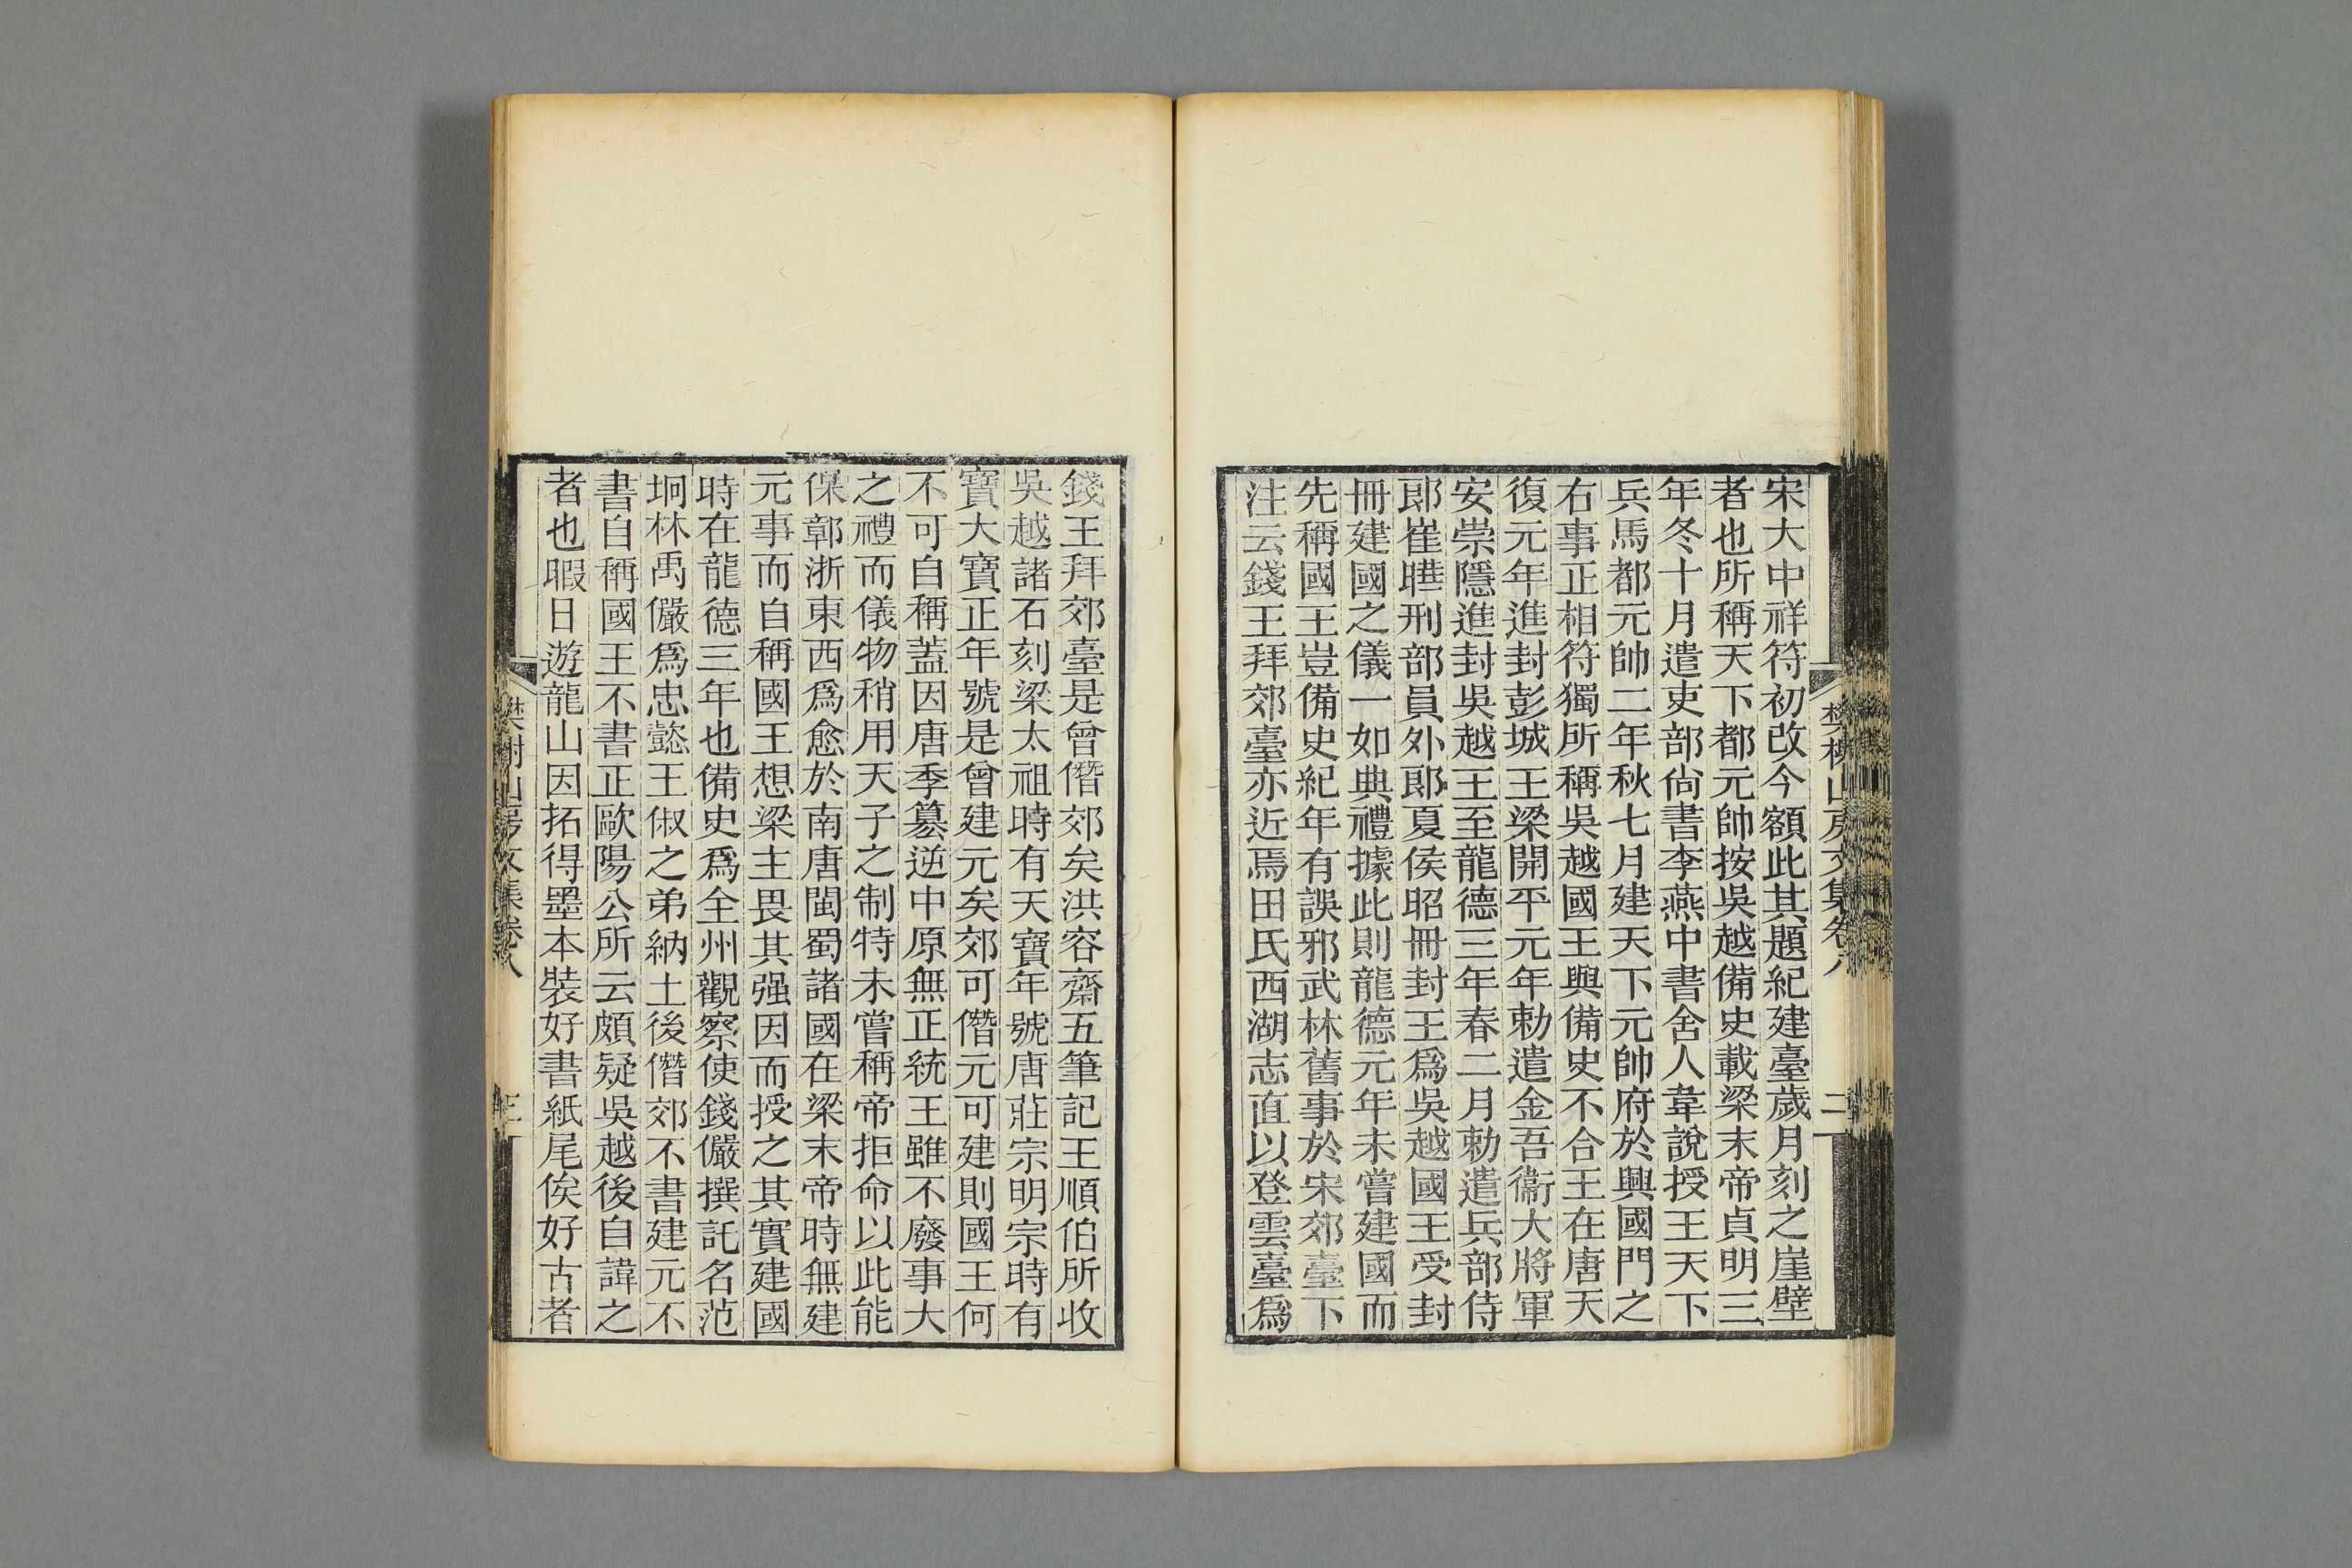 宋大中祥符初改今額此其題紀建臺歲月刻之崖壁
者也所稱天下都元帥按吳越備史載梁末帝貞明三
年冬十月遣吏部尙書李燕中書舍人韋說授王天下
兵馬都元帥二年秋七月建天下元帥府於興國門之
右事正相符獨所稱吳越國王與備史不合王在唐天
復元年進封彭城王梁開平元年勅遣金吾衞大將軍
安崇隱進封吳越王至龍德三年春二月勅遣兵部侍
郎崔曄刑部員外郎夏侯昭冊封王爲吳越國王受封
冊建國之儀一如典禮據此則龍德元年未嘗建國而
先稱國王豈備史紀年有誤邪武林舊事於宋郊臺下
注云錢王拜郊臺亦近焉田氏西湖志直以登雲臺爲
錢王拜郊臺是曾僭郊矣洪容齋五筆記王順伯所收
吳越諸石刻梁太祖時有天寶年號唐莊宗明宗時有
寶大寶正年號是曾建元矣郊可僭元可建則國王何
不可自稱蓋因唐季簒逆中原無正統王雖不廢事大
之禮而儀物稍用天子之制特未嘗稱帝拒命以此能
保鄣浙東西爲愈於南唐閩蜀諸國在梁末帝時無建
元事而自稱國王想梁主畏其强因而授之其實建國
時在龍德三年也備史爲全州觀察使錢儼撰託名范
坰林禹儼爲忠懿王俶之弟納土後僭郊不書建元不
書自稱國王不書正歐陽公所云頗疑吳越後自諱之
者也暇日遊龍山因拓得墨本裝好書紙尾俟好古者
樊榭山房文集卷八
二
樊榭山房文集卷八
三